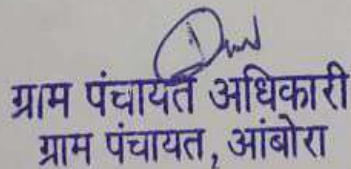 ग्राम पंचायत अधिकारी
ग्राम पंचायत, आंबोरा